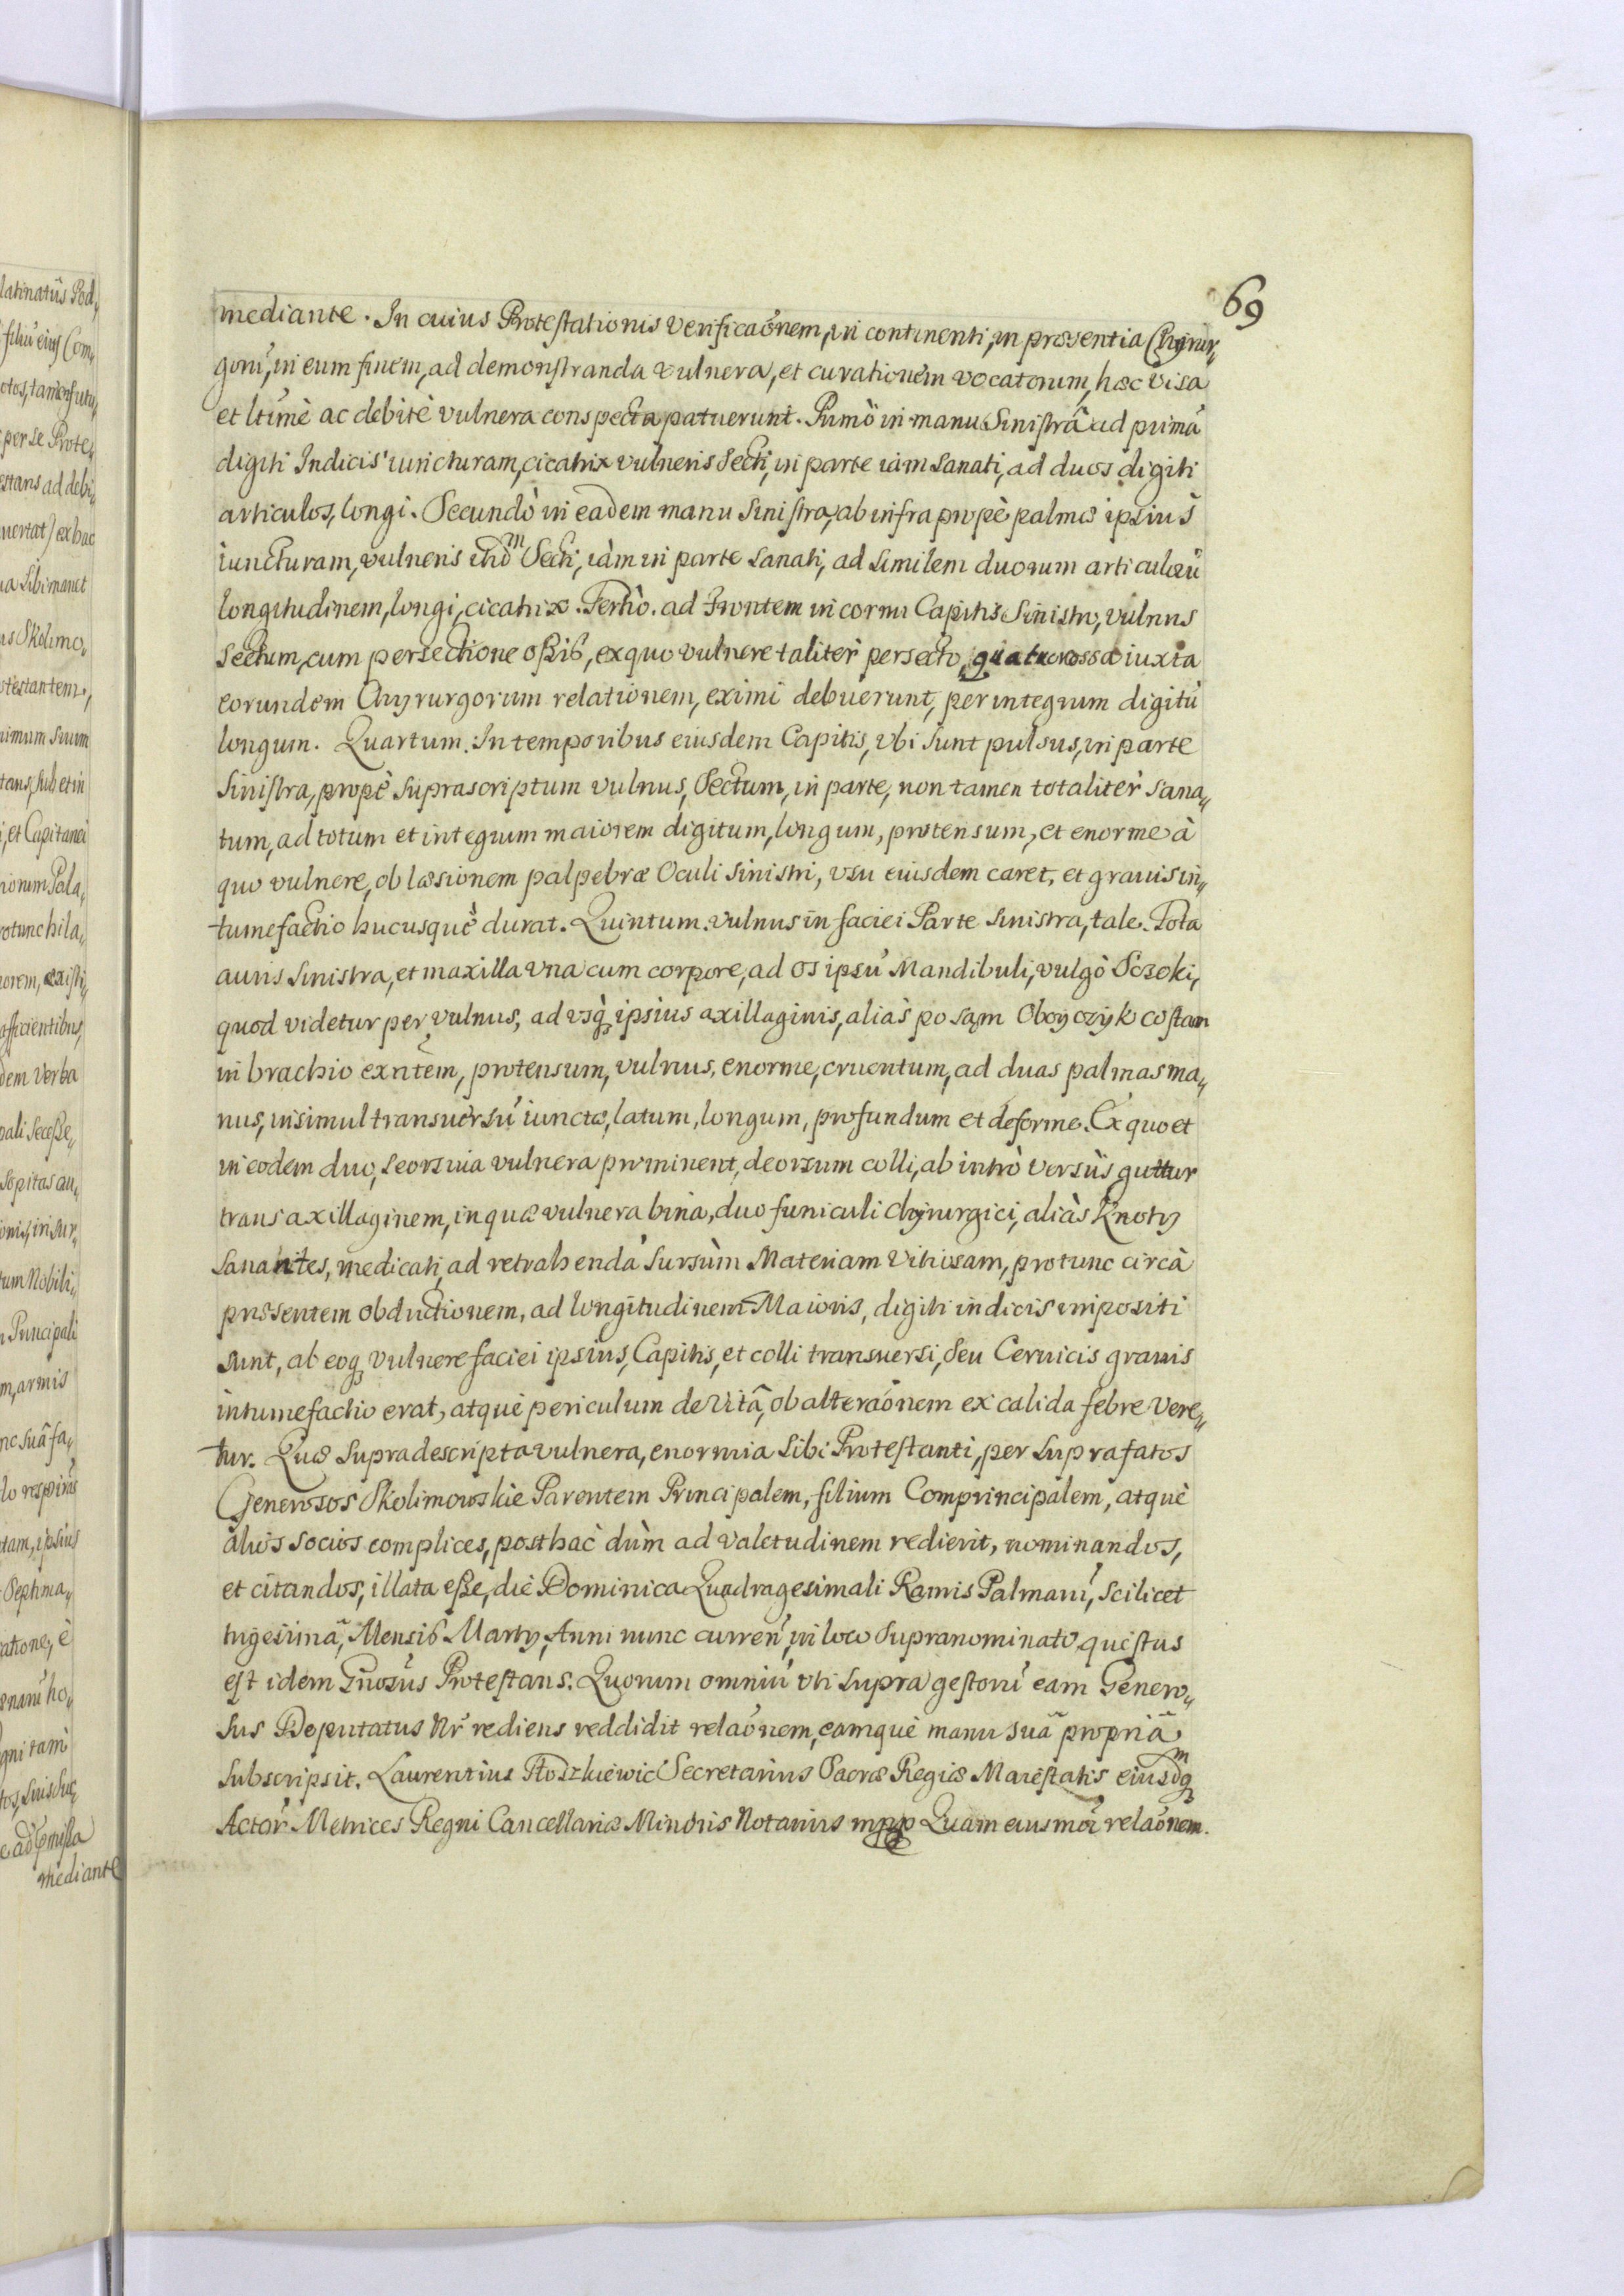 69
mediante. In cuius Protestationis verificaōnem, in continenti, in præsentia Chyrur„
gorū, in eum finem, ad demonstranda vulnera, et curationem vocatorum, hæc visa
et ltimè ac debitè vulnera conspecta patuerunt. Primò in manu Sinistrâ ad primā
digiti Indicis iuncturam, cicatrix vulneris Secti, in parte iam Sanati, ad duos digiti
articulos, longi. Secundò in eadem manu Sinistra, ab infra propè palmæ ipsius
iuncturam, vulneris itid^m Secti, iàm in parte Sanati, ad Similem duorum articulorū
longitudinem, longi, cicatrix. Tertiò. ad Frontem in cornu Capitis Sinistro, vulnus
Sectum, cum persectione oßis, ex quo vulnere taliter persecto, quatuor ossa iuxta
eorundem Chyrurgorum relationem, eximi debuerunt, per integrum digitū
longum. Quartum. In temporibus eiusdem Capitis, vbi Sunt pulsus, in parte
Sinistra, propè Suprascriptum vulnus, Sectum, in parte, non tamen totalitèr Sana„
tum, ad totum et integrum maiorem digitum, longum, protensum, et enorme à
quo vulnere, ob læsionem palpebræ Oculi Sinistri, vsu eiusdem caret, et grauis in„
tumefactio hucusquè durat. Quintum. vulnus in faciei Parte Sinistra, tale. Tota
auris Sinistra, et maxilla vna cum corpore, ad os ipsū Mandibuli, vulgò Sczoki,
quod videtur per vulnus, ad vsq, ipsius axillaginis, aliàs po sąm Oboyczyk costam
in brachio exñtem, protensum, vulnus, enorme, cruentum, ad duas palmas ma„
nus, insimul transuersū iunctæ, latum, longum, profundum et deforme. Ex quo et
in eodem duo, Seorsiuia vulnera prominent, deorsum colli, ab intrò versùs guttur
trans axillaginem, in quæ vulnera bina, duo funiculi chyrurgici, aliàs Knoty
Sanantes, medicati, ad retrahendā Sursùm Materiam Vitiosam, protunc circà
præsentem obductionem, ad longitudinem Maioris, digiti indicis impositi
Sunt, ab eoq, vulnere faciei ipsius, Capitis, et colli transuersi, Seu Ceruicis grauis
intumefactio erat, atquè periculum de Vitâ, ob alteraōnem ex calida febre Vere„
tur. Quæ Supradescripta vulnera, enormia Sibi Protestanti, per Suprafatos
Generosos Skolimowskie Parentem Principalem, filium Comprincipalem, atquè
alios Socios complices, posthac dùm ad valetudinem redierit, nominandos,
et citandos, illata eße, die Dominica Quadragesimali Ramis Palmarū, Scilicet
trigesimā, Mensis Marty, Anni nunc curreñ, in loco Supranominato, questus
est idem Gnosus Protestans. Quorum omniū vti Supra gestorū eam Genero„
Sus Deputatus Nr̄ rediens reddidit relaōnem, eamquè manu Suâ propriâ
Subscripsit. Laurentius Hoszkiewic Secretarius Sacræ Regiæ Maiestatis eiusdq^m
Actor̄ Metrices Regni Cancellariæ Minoris Notarius mpp Quam eiusmōi relaōnem.